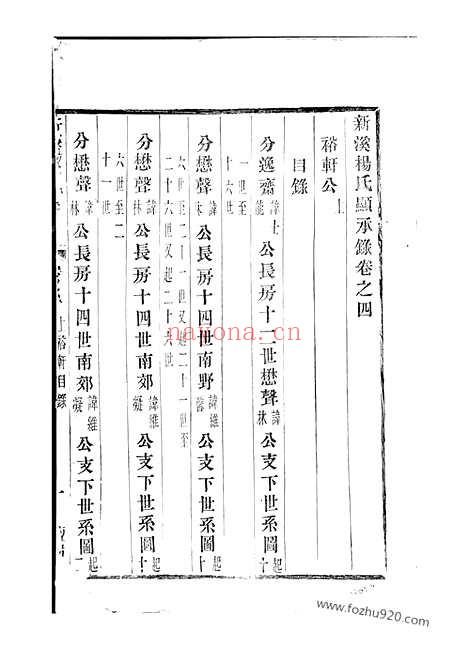 新溪楊氏顯承錄卷之四
裕軒公上
目錄
分逸齋諱士公長房十二世懋聲諱林公支下世系圖起十
一世至十六世
分懋聲諱林公長房十四世南野諱維公支下世系圖起十
六世至二十一世又起二十一世至二十六世又起二十六世
分懋聲諱林公長房十四世南郊諱維凝公支下世系圖起十
六世至二十一世
分懋聲諱林公長房十四世南郊諱維凝公支下世系圖起二
上裕軒目錄
nayona.cn
www.fozhu920.com